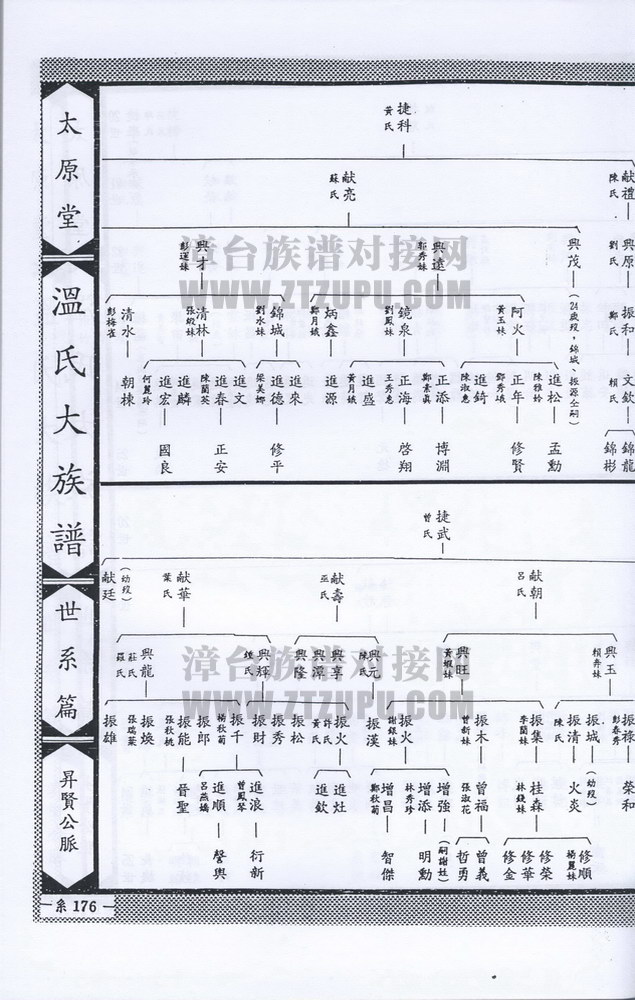 太原堂
溫氏大族譜
世系篇
昇賢公脈
系 176
捷科
黃氏
献禮
陳氏
献亮
蘇氏
興原
劉氏
興茂
(24歲歿,錦城、振源仝嗣)
興遠
鄭秀妹
興才
彭運妹
振和
鄭氏
阿火
黃玉妹
鏡泉
劉鳳妹
炳鑫
鄭月娥
錦城
劉水妹
清林
張緞妹
清水
彭梅雀
文欽
賴氏
進松
陳雅玲
正年
鄧秀娥
進錡
陳淑惠
正添
鄭素真
正海
王秀惠
進盛
黃月娥
進源
進來
進德
梁美娜
進文
進春
陳蘭英
進麟
進宏
何麗玲
朝棟
錦龍
錦彬
孟勳
修賢
博淵
啓翔
修平
正安
國良
捷武
曾氏
献朝
呂氏
献壽
巫氏
献華
葉氏
献廷
(幼歿)
興玉
賴弄妹
興旺
黃緞妹
興元
陳氏
興享
興潭
興隆
興輝
鍾氏
興龍
莊氏
羅氏
振祿
彭春秀
振城
(幼歿)
振清
陳氏
振集
李蘭妹
振木
曾新妹
振火
謝銀妹
振漢
振火
許氏
黃氏
振松
振秀
振財
振千
楊秋菊
振郎
振能
張秋桃
振煥
張瑞葉
振雄
荣和
火炎
桂森
林錢妹
曾福
張淑花
增強
(嗣謝姓)
增添
林秀珍
增昌
鄭秋菊
進灶
進欽
進浪
曾鳳琴
進順
呂燕嬌
晉聖
修順
楊麗妹
修榮
修華
修金
曾義
哲勇
明勳
智傑
衍新
聲與
漳台族谱对接网
WWW.ZTZUPU.COM
漳台族谱对接网
WWW.ZTZUPU.COM